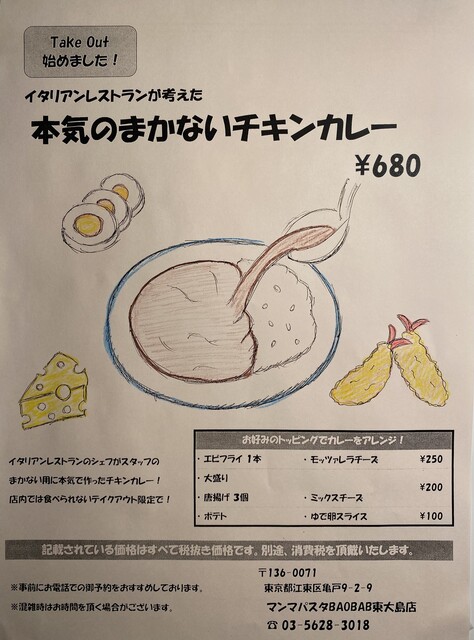 Take Out
始めました！
イタリアンレストランが考えた
本気のまかないチキンカレー
¥680
お好みのトッピングでカレーをアレンジ！
・エビフライ 1本 ・モッツァレラチーズ ¥250
・大盛り
¥200
・唐揚げ 3個 ・ミックスチーズ
・ポテト ・ゆで卵スライス ¥100
イタリアンレストランのシェフがスタッフの
まかない用に本気で作ったチキンカレー！
店内では食べられないテイクアウト限定で！
記載されている価格はすべて税抜き価格です。別途、消費税を頂戴いたします。
※事前にお電話での御予約をおすすめしております。
※混雑時はお時間を頂く場合がございます。
〒136-0071
東京都江東区亀戸9-2-9
マンマパスタBAOBAB東大島店
☎ 03-5628-3018